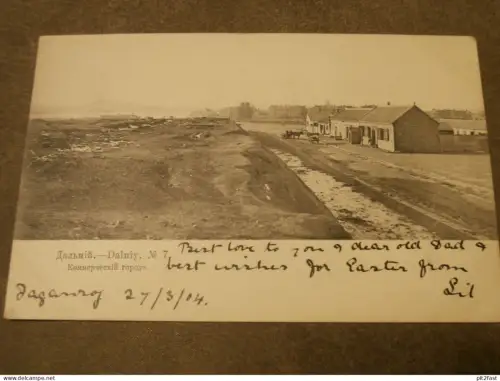 Дальній.—Dalniy. № 7
Коммерческій городъ.
Best love to you & dear old Dad &
best wishes for Easter from
Lil
Taganrog 27/3/04.
www.delcampe.net
pit2fast